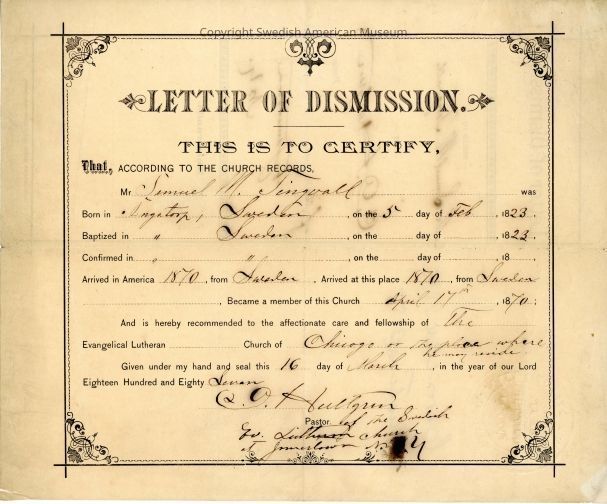 Copyright Swedish American Museum
LETTER OF DISMISSION.
THIS IS TO CERTIFY,
That, ACCORDING TO THE CHURCH RECORDS,
Mr Samuel M. Tingvall was
Born in Ingatorp, Sweden, on the 5 day of Feb, 1823,
Baptized in " Sweden, on the day of, 1823,
Confirmed in " ", on the day of 18
Arrived in America 1870, from Sweden. Arrived at this place 1870, from Sweden
, Became a member of this Church April 17th 1870;
And is hereby recommended to the affectionate care and fellowship of The
Evangelical Lutheran Church of Chicago or the place where
he may reside.
Given under my hand and seal this 16 day of March, in the year of our Lord
Eighteen Hundred and Eighty Seven
Hultgren
Pastor. of the Swedish
Ev. Lutheran Church
at Jamestown N. Y